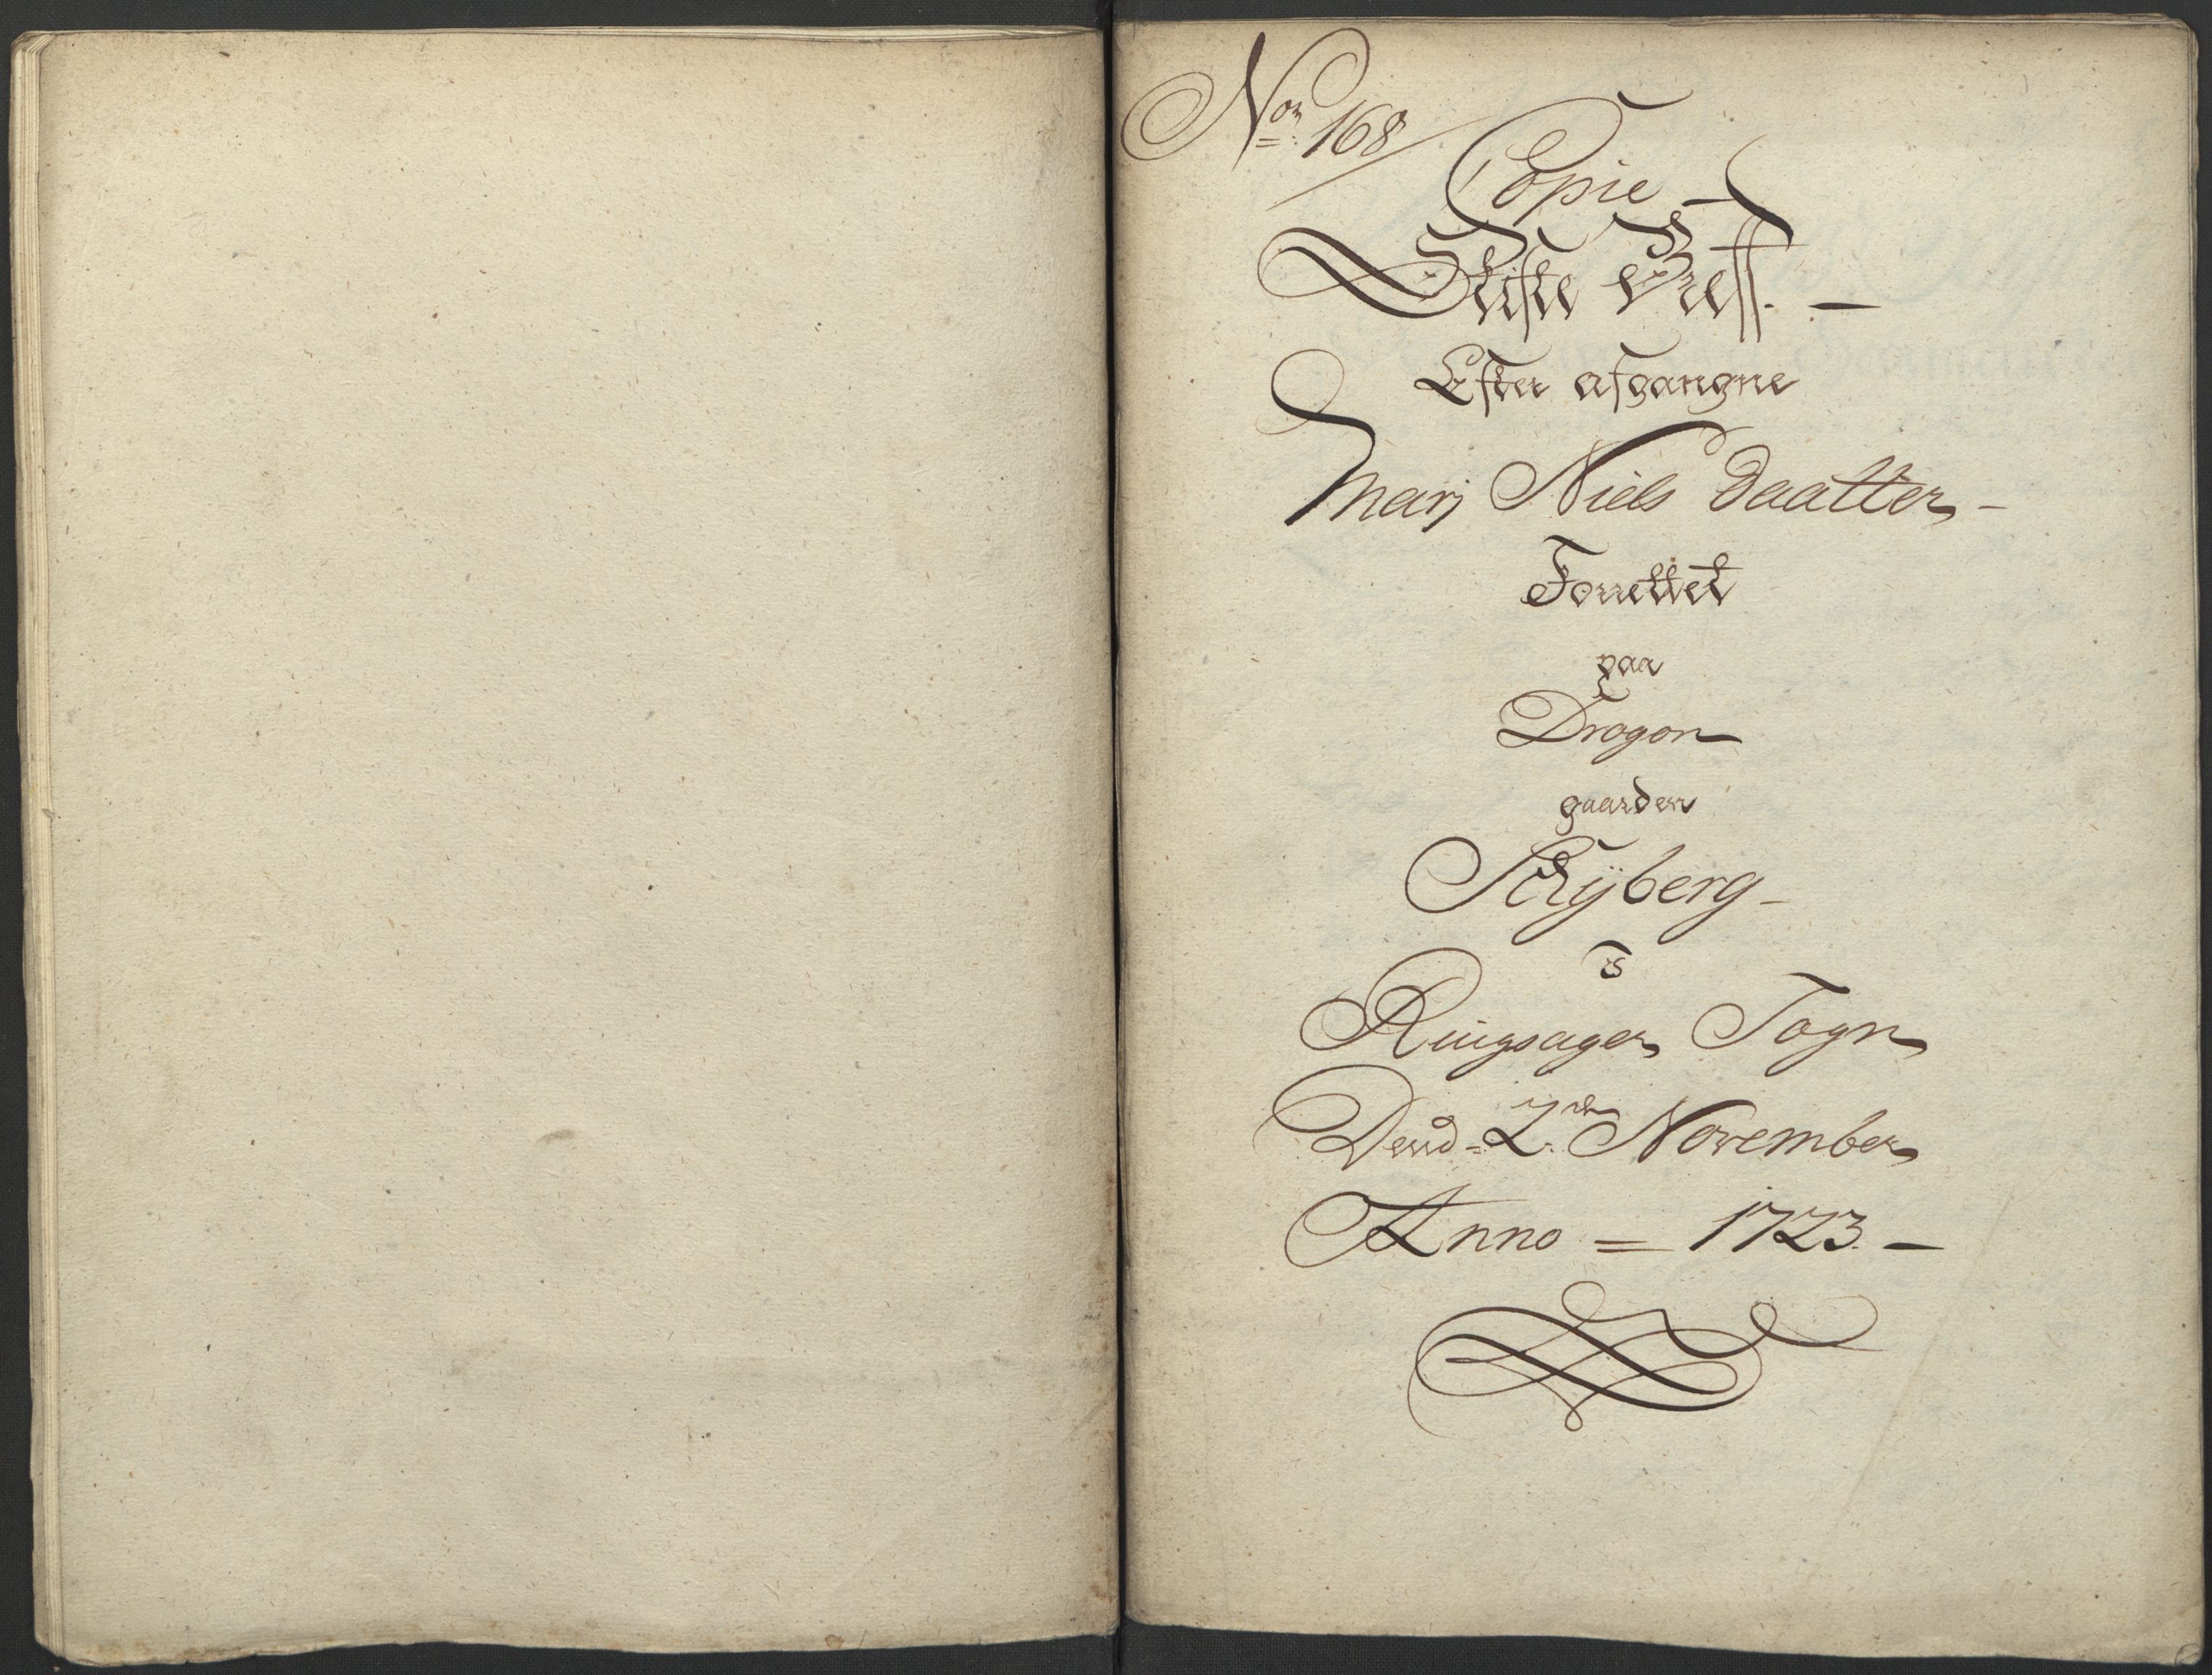 Nor: 168
Copie
Skifte Breff. —
Efter afgangne
Marj Niels Daatter –
Forrettet
paa
Dragon
gaarden
Schÿberg –
i
Ringsager Sogn
Dend = 2de November
Anno = 1723. —